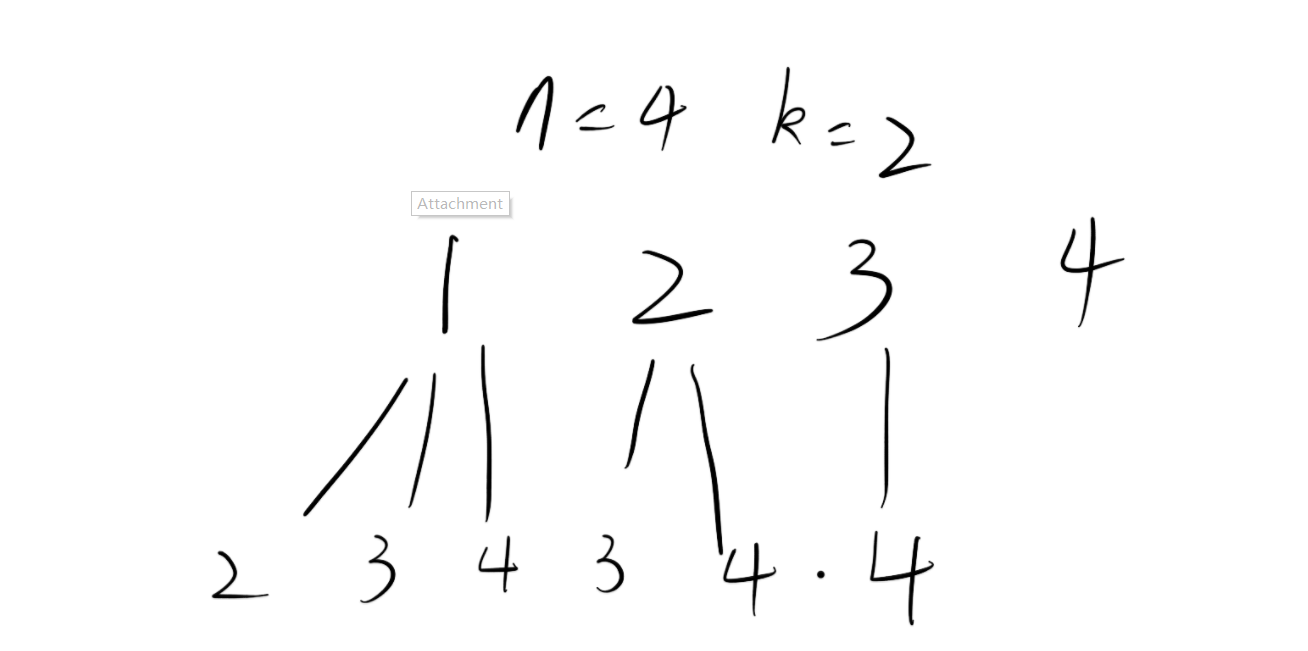 n = 4 k = 2
Attachment
1 2 3 4
2 3 4 3 4 . 4